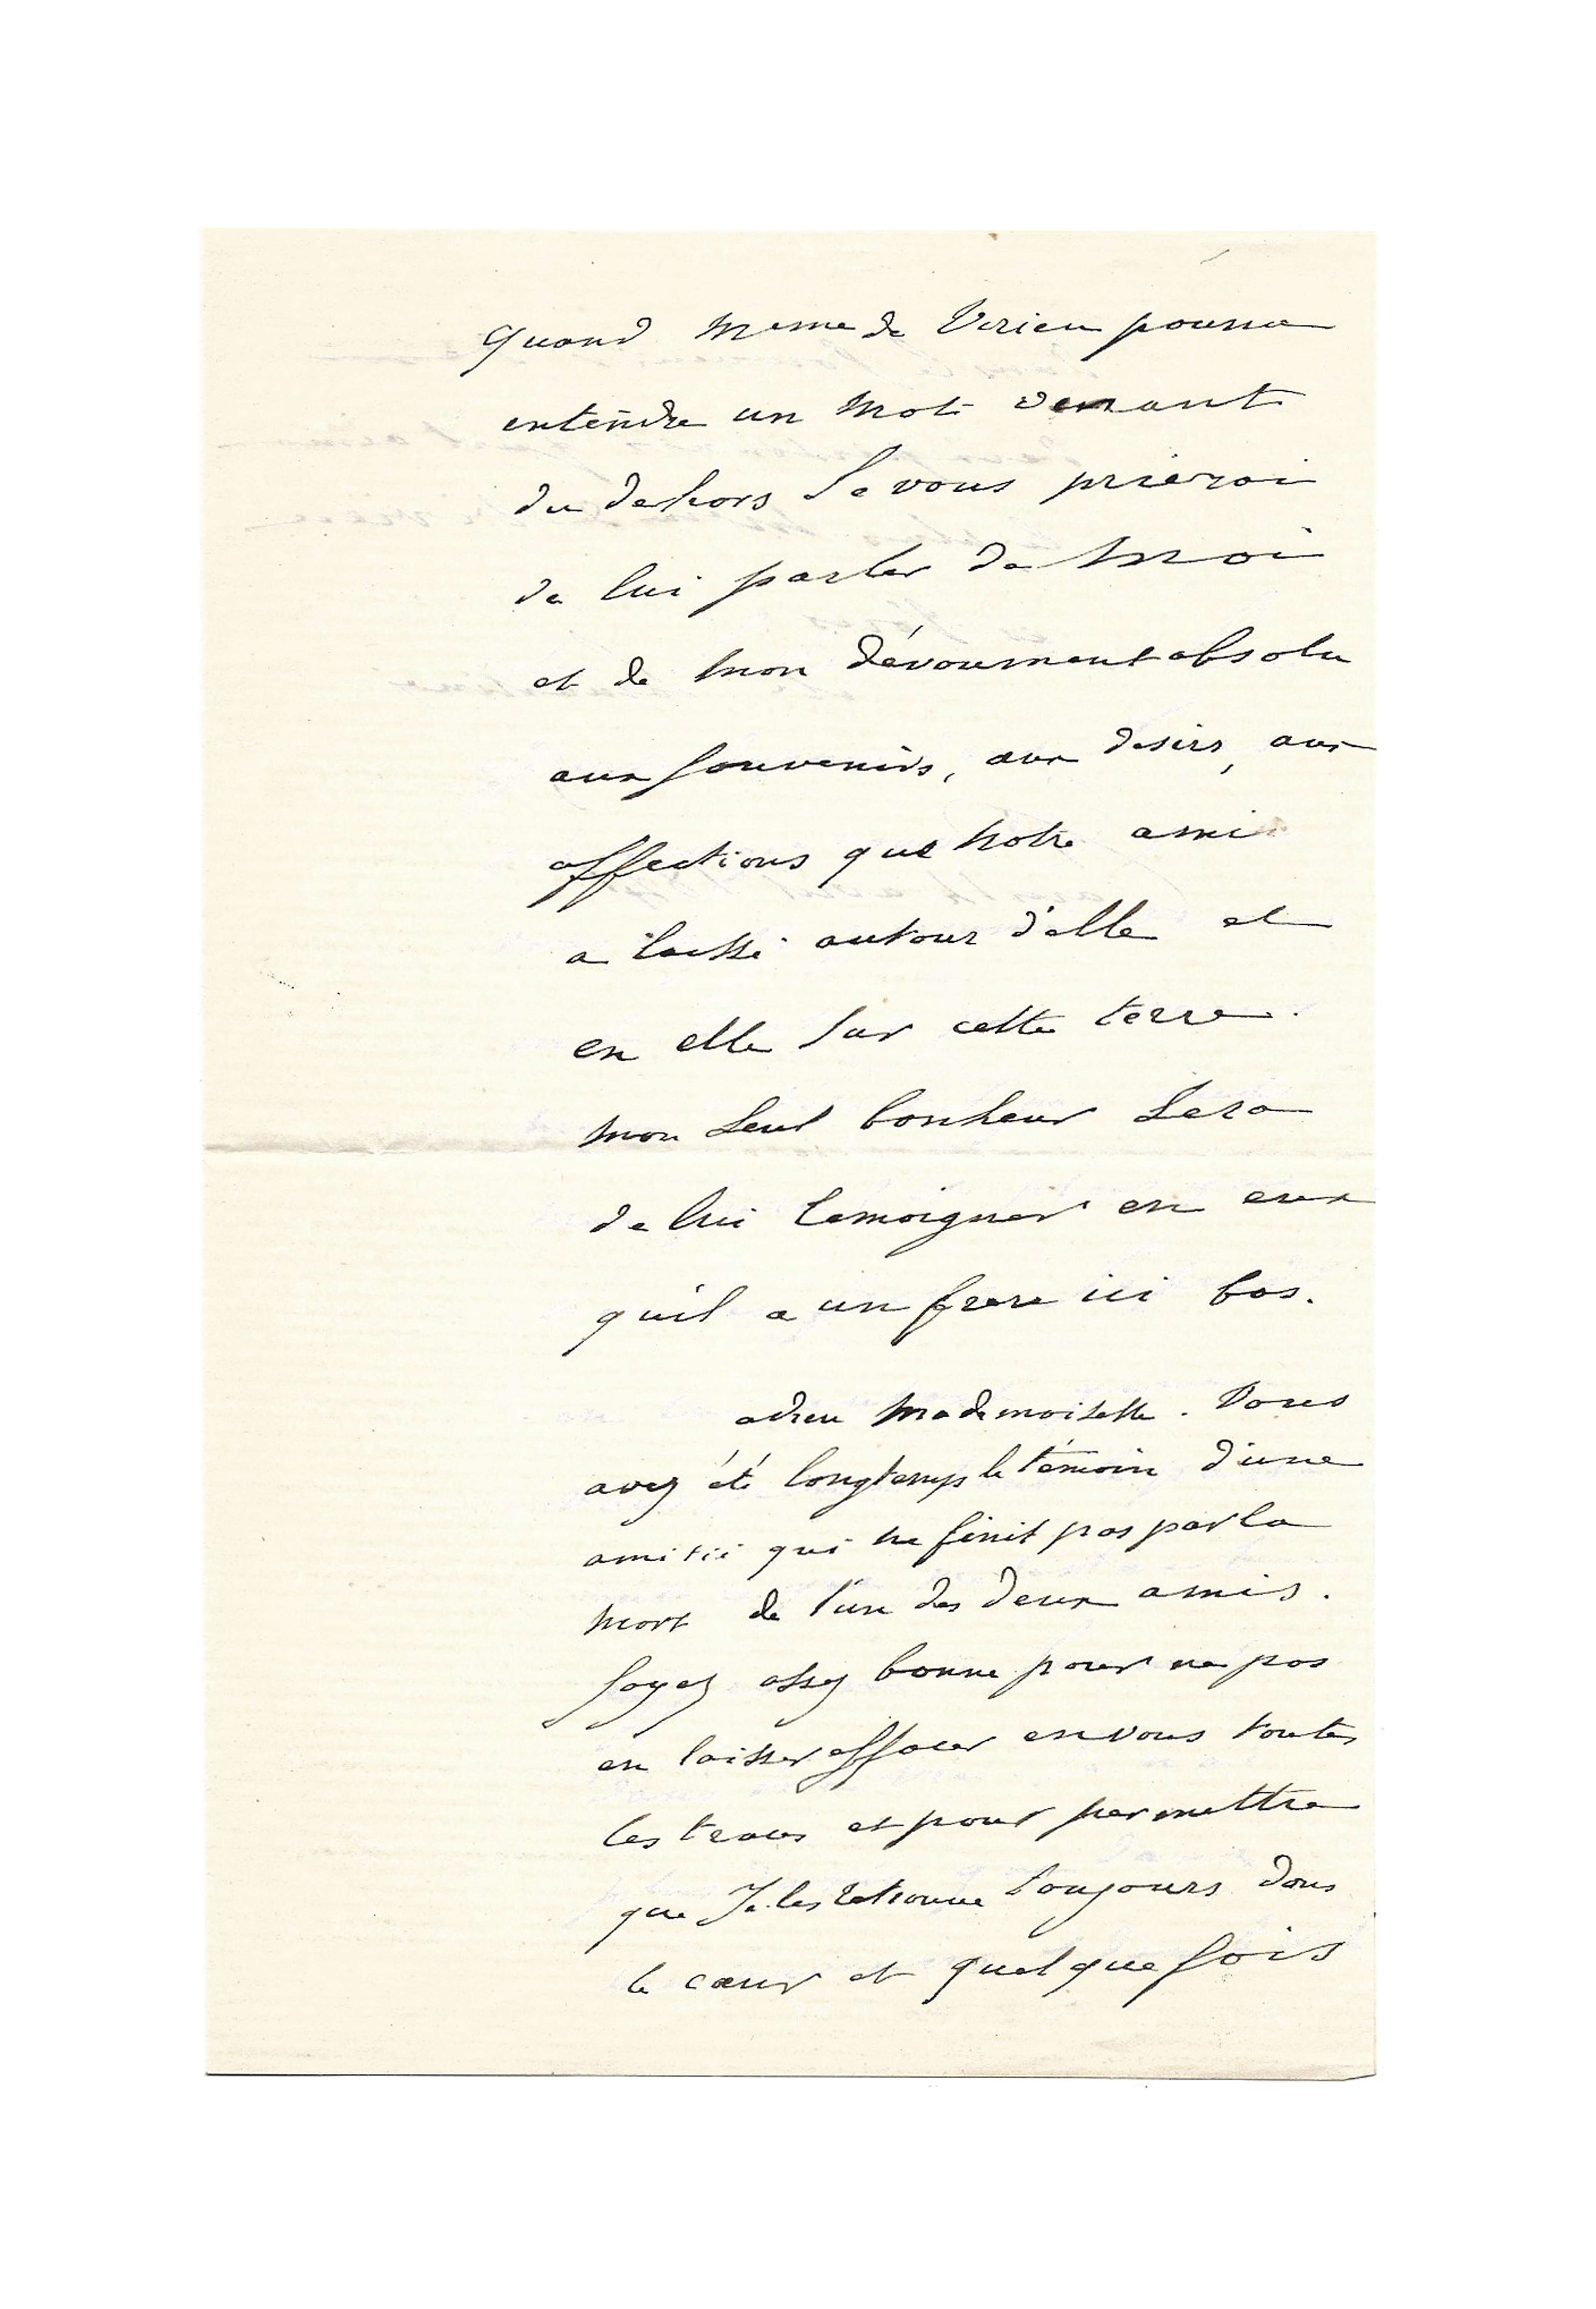 Quand Mme de Virieu pourra
entendre un mot venant
du dehors Je vous prierai
de lui parler de moi
et de mon dévoument absolu
aux souvenirs, aux desirs, aux
affections que notre ami
a laissé autour d'elle et
en elle sur cette terre.
mon seul bonheur sera
de lui temoigner en eux
qu'il a un frere ici bas.
adieu Mademoiselle. Vous
avez été longtemps le témoin d'une
amitié qui ne finit pas par la
mort de l'un des deux amis.
soyez assez bonne pour ne pas
en laisser effacer en vous toutes
les traces et pour permettre
que Je les retrouve toujours dans
le cœur et quelque fois